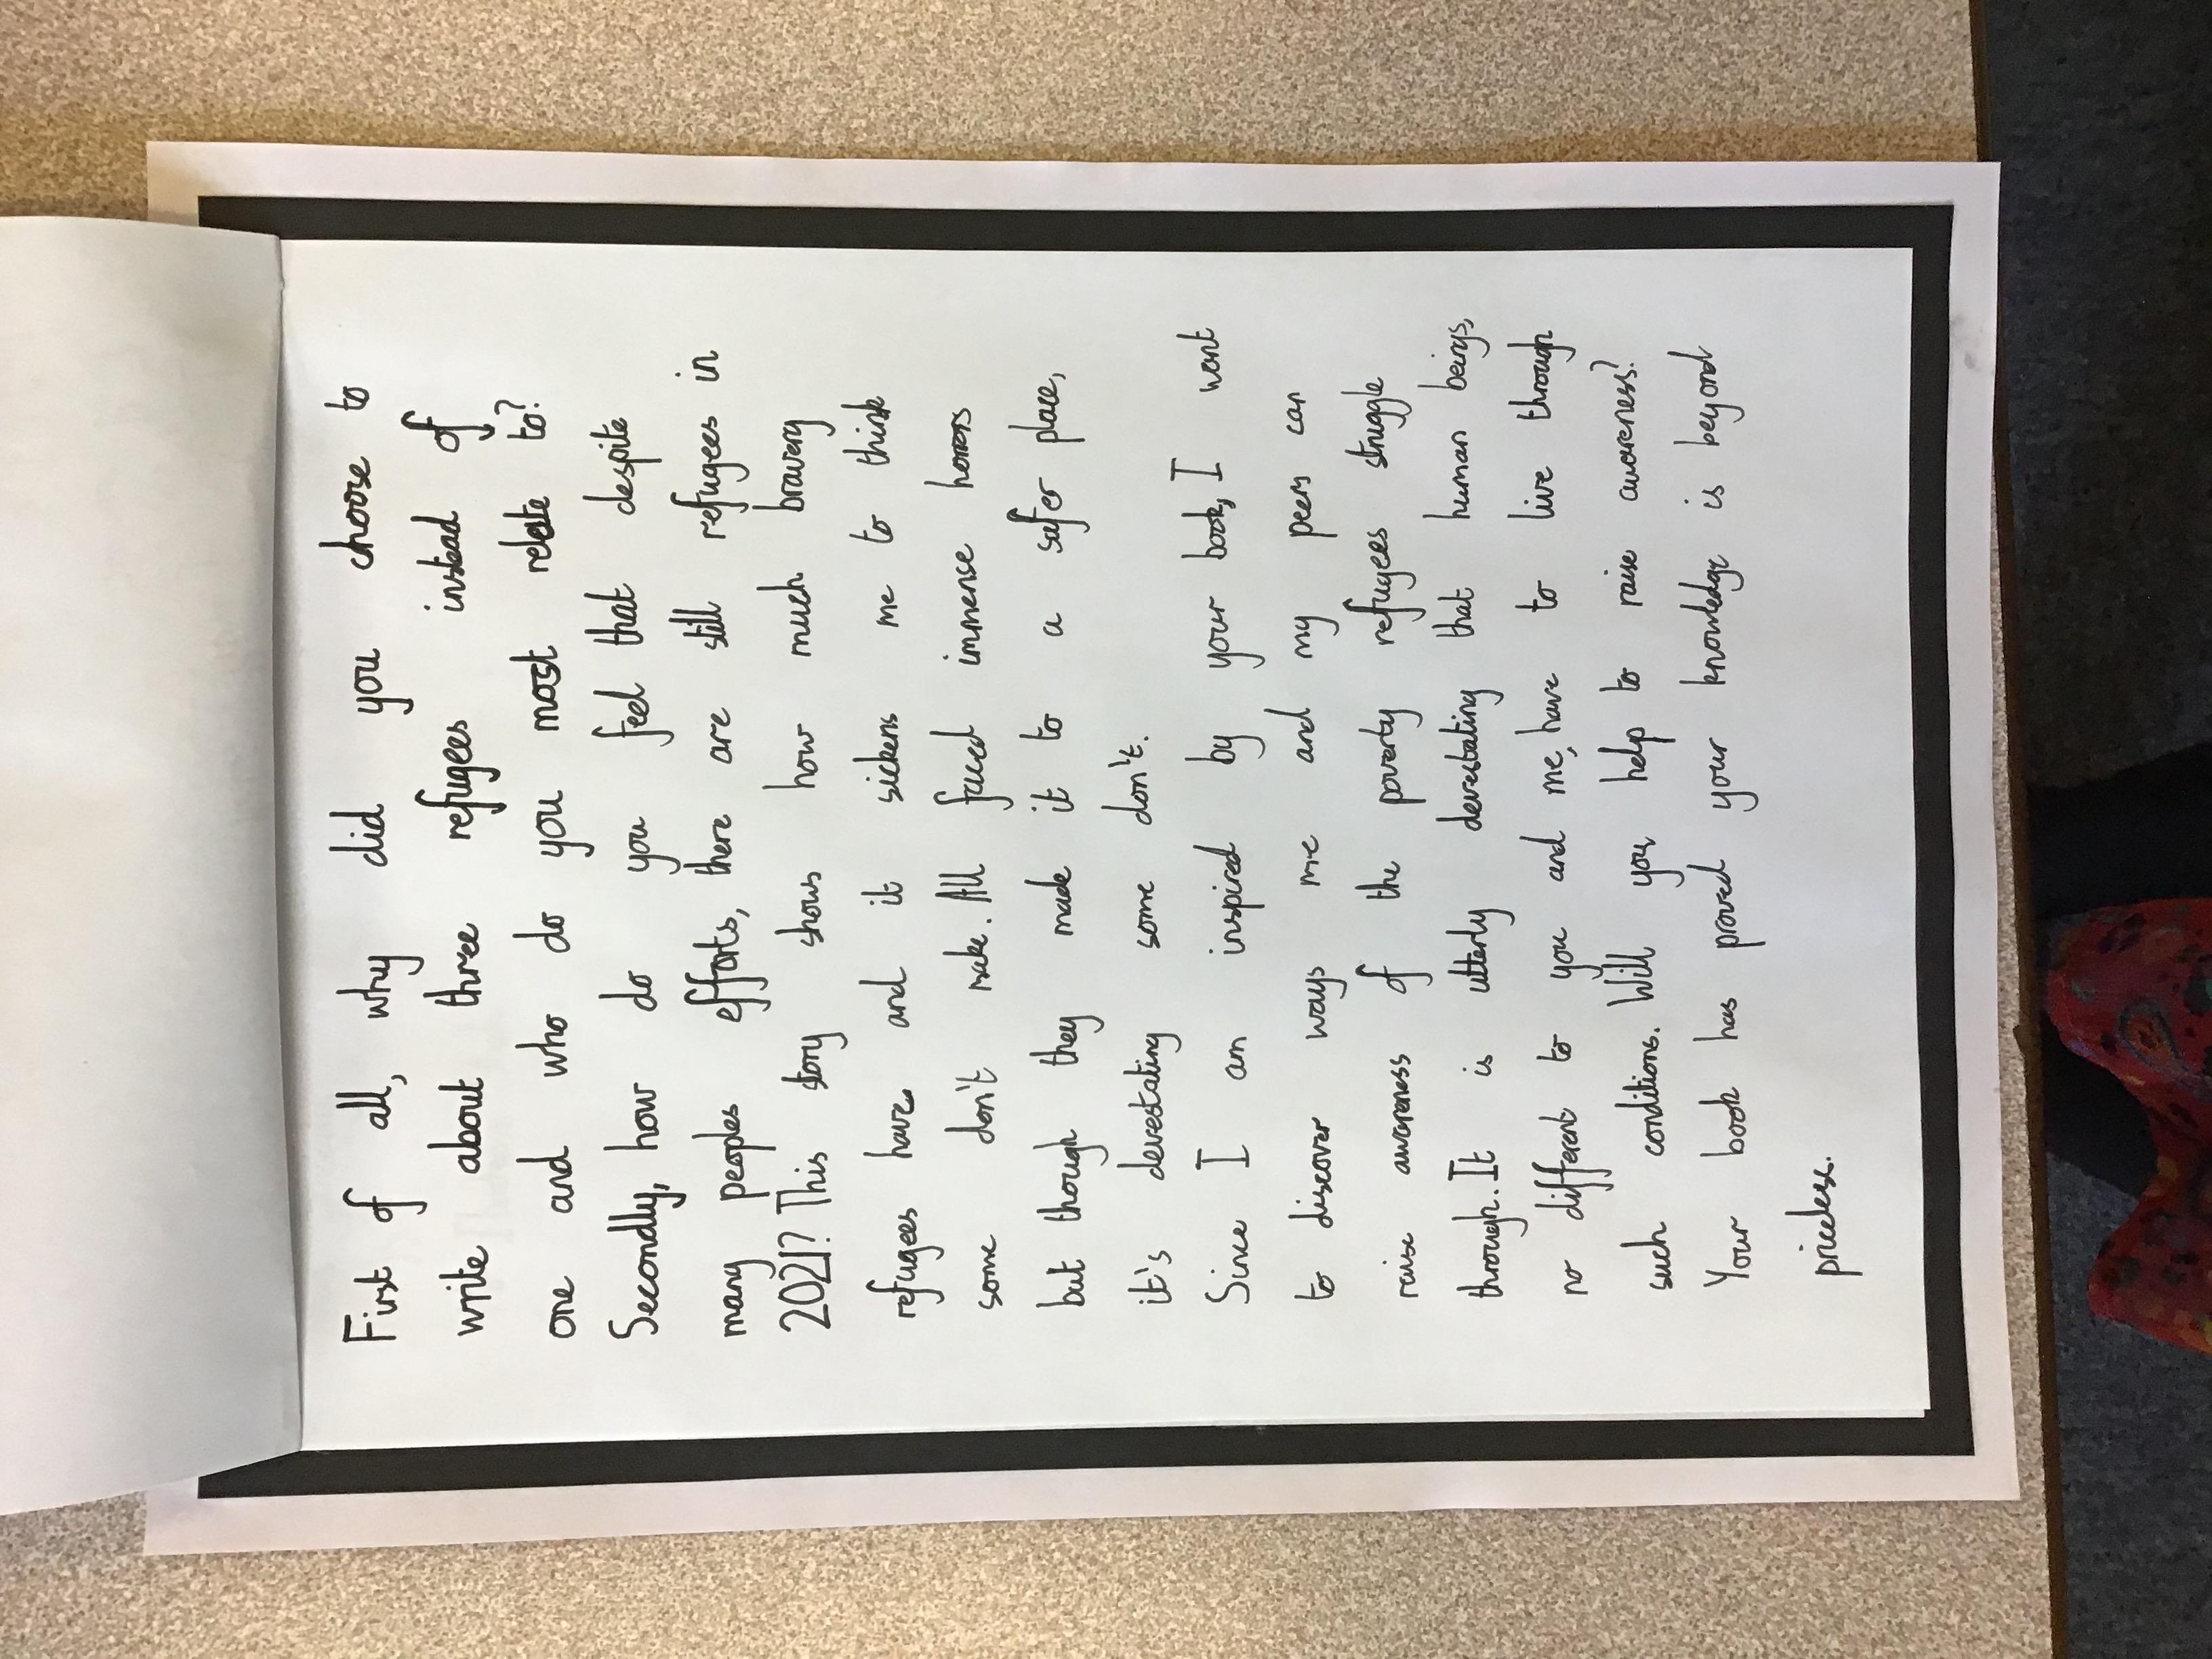 First of all, why did you choose to
write about three refugees instead of
one and who do you most relate to?
Secondly, how do you feel that despite
many peoples efforts, there are still refugees in
2021? This story shows how much bravery
refugees have and it sickens me to think
some don't make. All faced immense horrors
but though they made it to a safer place,
it's devestating some don't.
Since I am inspired by your book, I want
to discover ways me and my peers can
raise awareness of the poverty refugees struggle
through. It is utterly devestating that human beings,
no different to you and me, have to live through
such conditions. Will you help to raise awareness?
Your book has proved your knowledge is beyond
priceless.